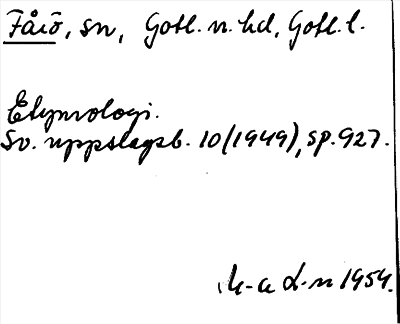 Fårö, sn, Gotl. n. hd, Gotl. l.
Etymologi.
Sv. uppslagsb. 10 (1949), sp. 927.
M-a L-n 1954.